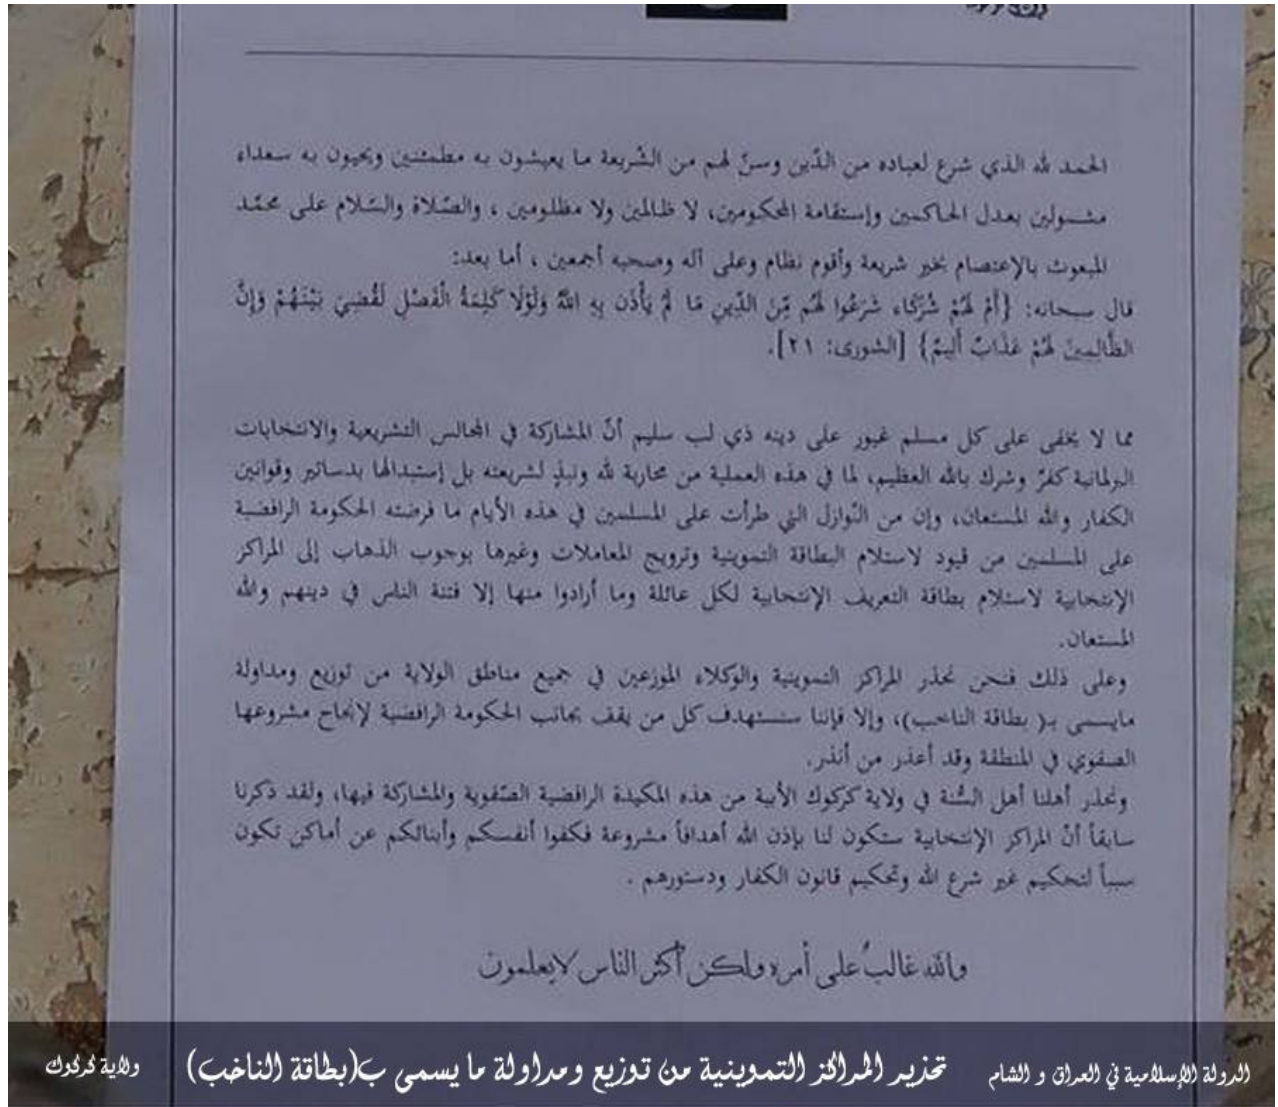 الحمد لله الذي شرع لعباده من الدّين وسنّ لهم من الشّريعة ما يعيشون به مطمئنين ويحيون به سعداء
مشمولين بعدل الحاكمين وإستقامة المحكومين، لا ظالمين ولا مظلومين ، والصّلاة والسّلام على محمّد
المبعوث بالإعتصام بخير شريعة وأقوم نظام وعلى آله وصحبه أجمعين ، أما بعد:
قال سبحانه: {أَمْ لَهُمْ شُرَكَاء شَرَعُوا لَهُم مِّنَ الدِّينِ مَا لَمْ يَأْذَن بِهِ اللَّهُ وَلَوْلَا كَلِمَةُ الْفَصْلِ لَقُضِيَ بَيْنَهُمْ وَإِنَّ
الظَّالِمِينَ لَهُمْ عَذَابٌ أَلِيمٌ} [الشورى: ٢١].
مما لا يخفى على كل مسلم غيور على دينه ذي لب سليم أنّ المشاركة في المجالس التشريعية والانتخابات
البرلمانية كفرٌ وشرك بالله العظيم، لما في هذه العملية من محاربة لله ونبذٍ لشريعته بل إستبدالها بدساتير وقوانين
الكفار والله المستعان، وإن من النّوازل التي طرأت على المسلمين في هذه الأيام ما فرضته الحكومة الرافضية
على المسلمين من قيود لاستلام البطاقة التموينية وترويج المعاملات وغيرها بوجوب الذهاب إلى المراكز
الإنتخابية لاستلام بطاقة التعريف الإنتخابية لكل عائلة وما أرادوا منها إلا فتنة الناس في دينهم والله
المستعان.
وعلى ذلك فنحن نحذر المراكز التموينية والوكلاء الموزعين في جميع مناطق الولاية من توزيع ومداولة
مايسمى بـ( بطاقة الناخب)، وإلا فإننا سنستهدف كل من يقف بجانب الحكومة الرافضية لإنجاح مشروعها
الصفوي في المنطقة وقد أعذر من أنذر.
ونحذر أهلنا أهل السُّنة في ولاية كركوك الأبية من هذه المكيدة الرافضية الصّفوية والمشاركة فيها، ولقد ذكرنا
سابقاً أنّ المراكز الإنتخابية ستكون لنا بإذن الله أهدافاً مشروعة فكفوا أنفسكم وأبنائكم عن أماكن تكون
سبباً لتحكيم غير شرع الله وتحكيم قانون الكفار ودستورهم .
والله غالبٌ على أمره ولكن أكثر الناس لايعلمون
الدولة الإسلامية في العراق و الشام تحذير المراكز التموينية من توزيع ومداولة ما يسمى بـ(بطاقة الناخب) ولاية كركوك